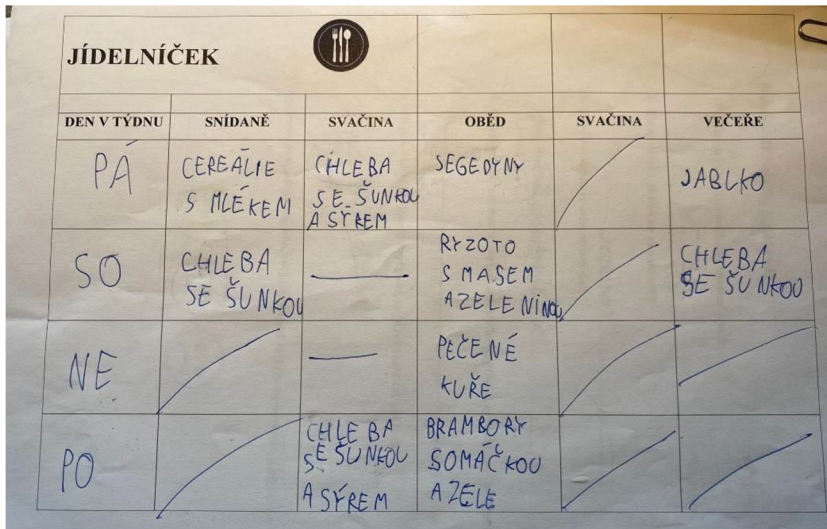 JÍDELNÍČEK
DEN V TÝDNU SNÍDANĚ SVAČINA OBĚD SVAČINA VEČEŘE
PÁ
CEREÁLIE
S MLÉKEM
CHLEBA
SE ŠUNKOU
A SÝREM
SEGEDYNY
JABLKO
SO
CHLEBA
SE ŠUNKOU
RYZOTO
S MASEM
A ZELENINOU
CHLEBA
SE ŠUNKOU
NE
PEČENÉ
KUŘE
PO
CHLEBA
SE ŠUNKOU
A SÝREM
BRAMBORY
S OMÁČKOU
A ZELE